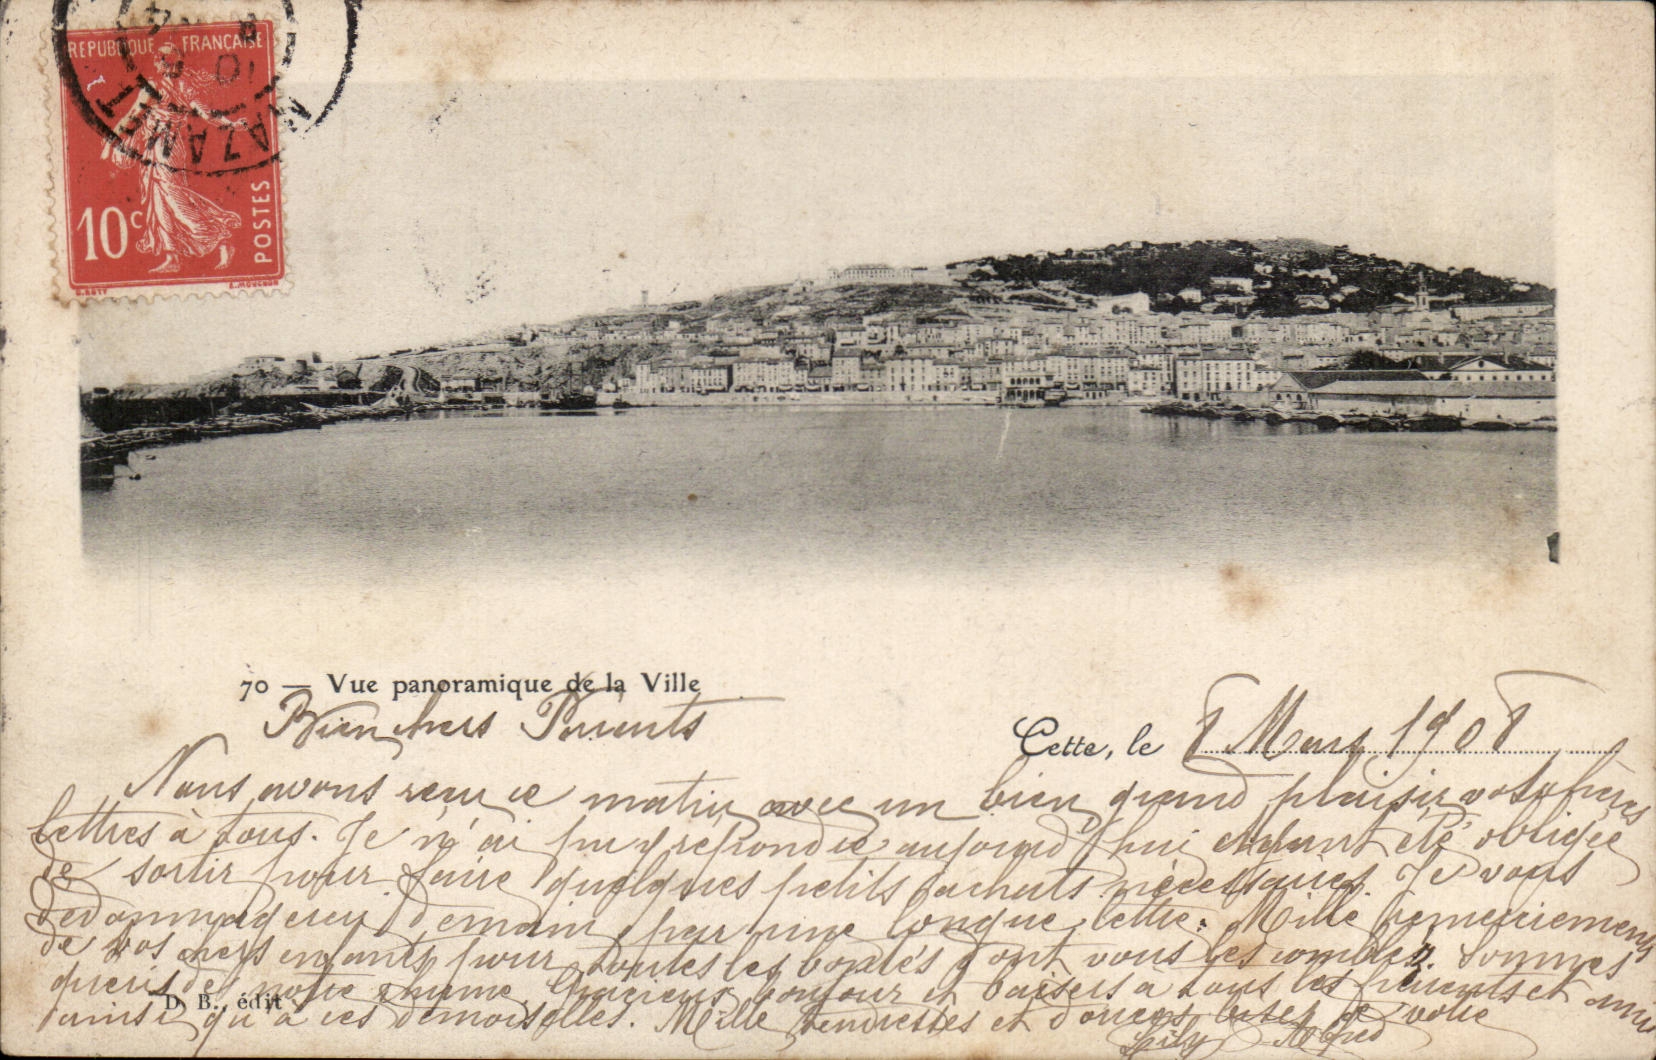 REPUBLIQUE FRANÇAISE
MAZAMET
10c
POSTES
O.ROTY L.MOUCHON
70 — Vue panoramique de la Ville
Bien chers Parents
Cette, le 8 Mars 1908
Nous avons reçu ce matin avec un bien grand plaisir vos chères
lettres à tous. Je n'ai pu y répondre aujourd'hui ayant été obligée
de sortir pour faire quelques petits achats nécessaires. Je vous
dedommagerey demain par une longue lettre. Mille remerciements
de vos chers enfants pour toutes les bontés dont vous les comblez. Sommes
queris de notre rhume. Gracieux bonjour et baisers à tous les parents et amis
D. B., édit.
ainsi qu'à ces demoiselles. Mille tendresses et doux baisers de votre
Lily